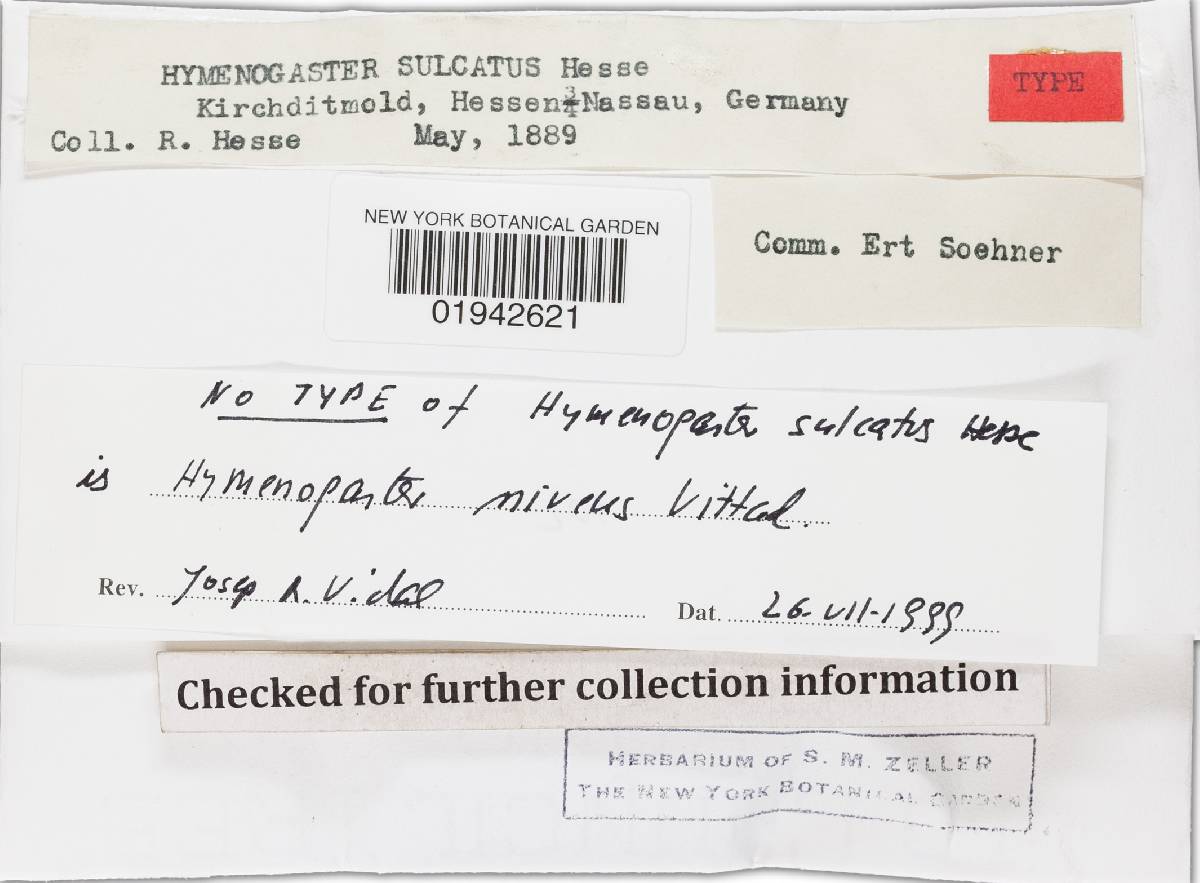 HYMENOGASTER SULCATUS Hesse
TYPE
Kirchditmold, Hessen-Nassau, Germany
Coll. R. Hesse May, 1889
NEW YORK BOTANICAL GARDEN
01942621
Comm. Ert Soehner
NO TYPE of Hymenogaster sulcatus Hesse
is Hymenogaster niveus Vittad.
Rev. Josep A. Vidal Dat. 26-VII-1999
Checked for further collection information
HERBARIUM OF S. M. ZELLER
THE NEW YORK BOTANICAL GARDEN